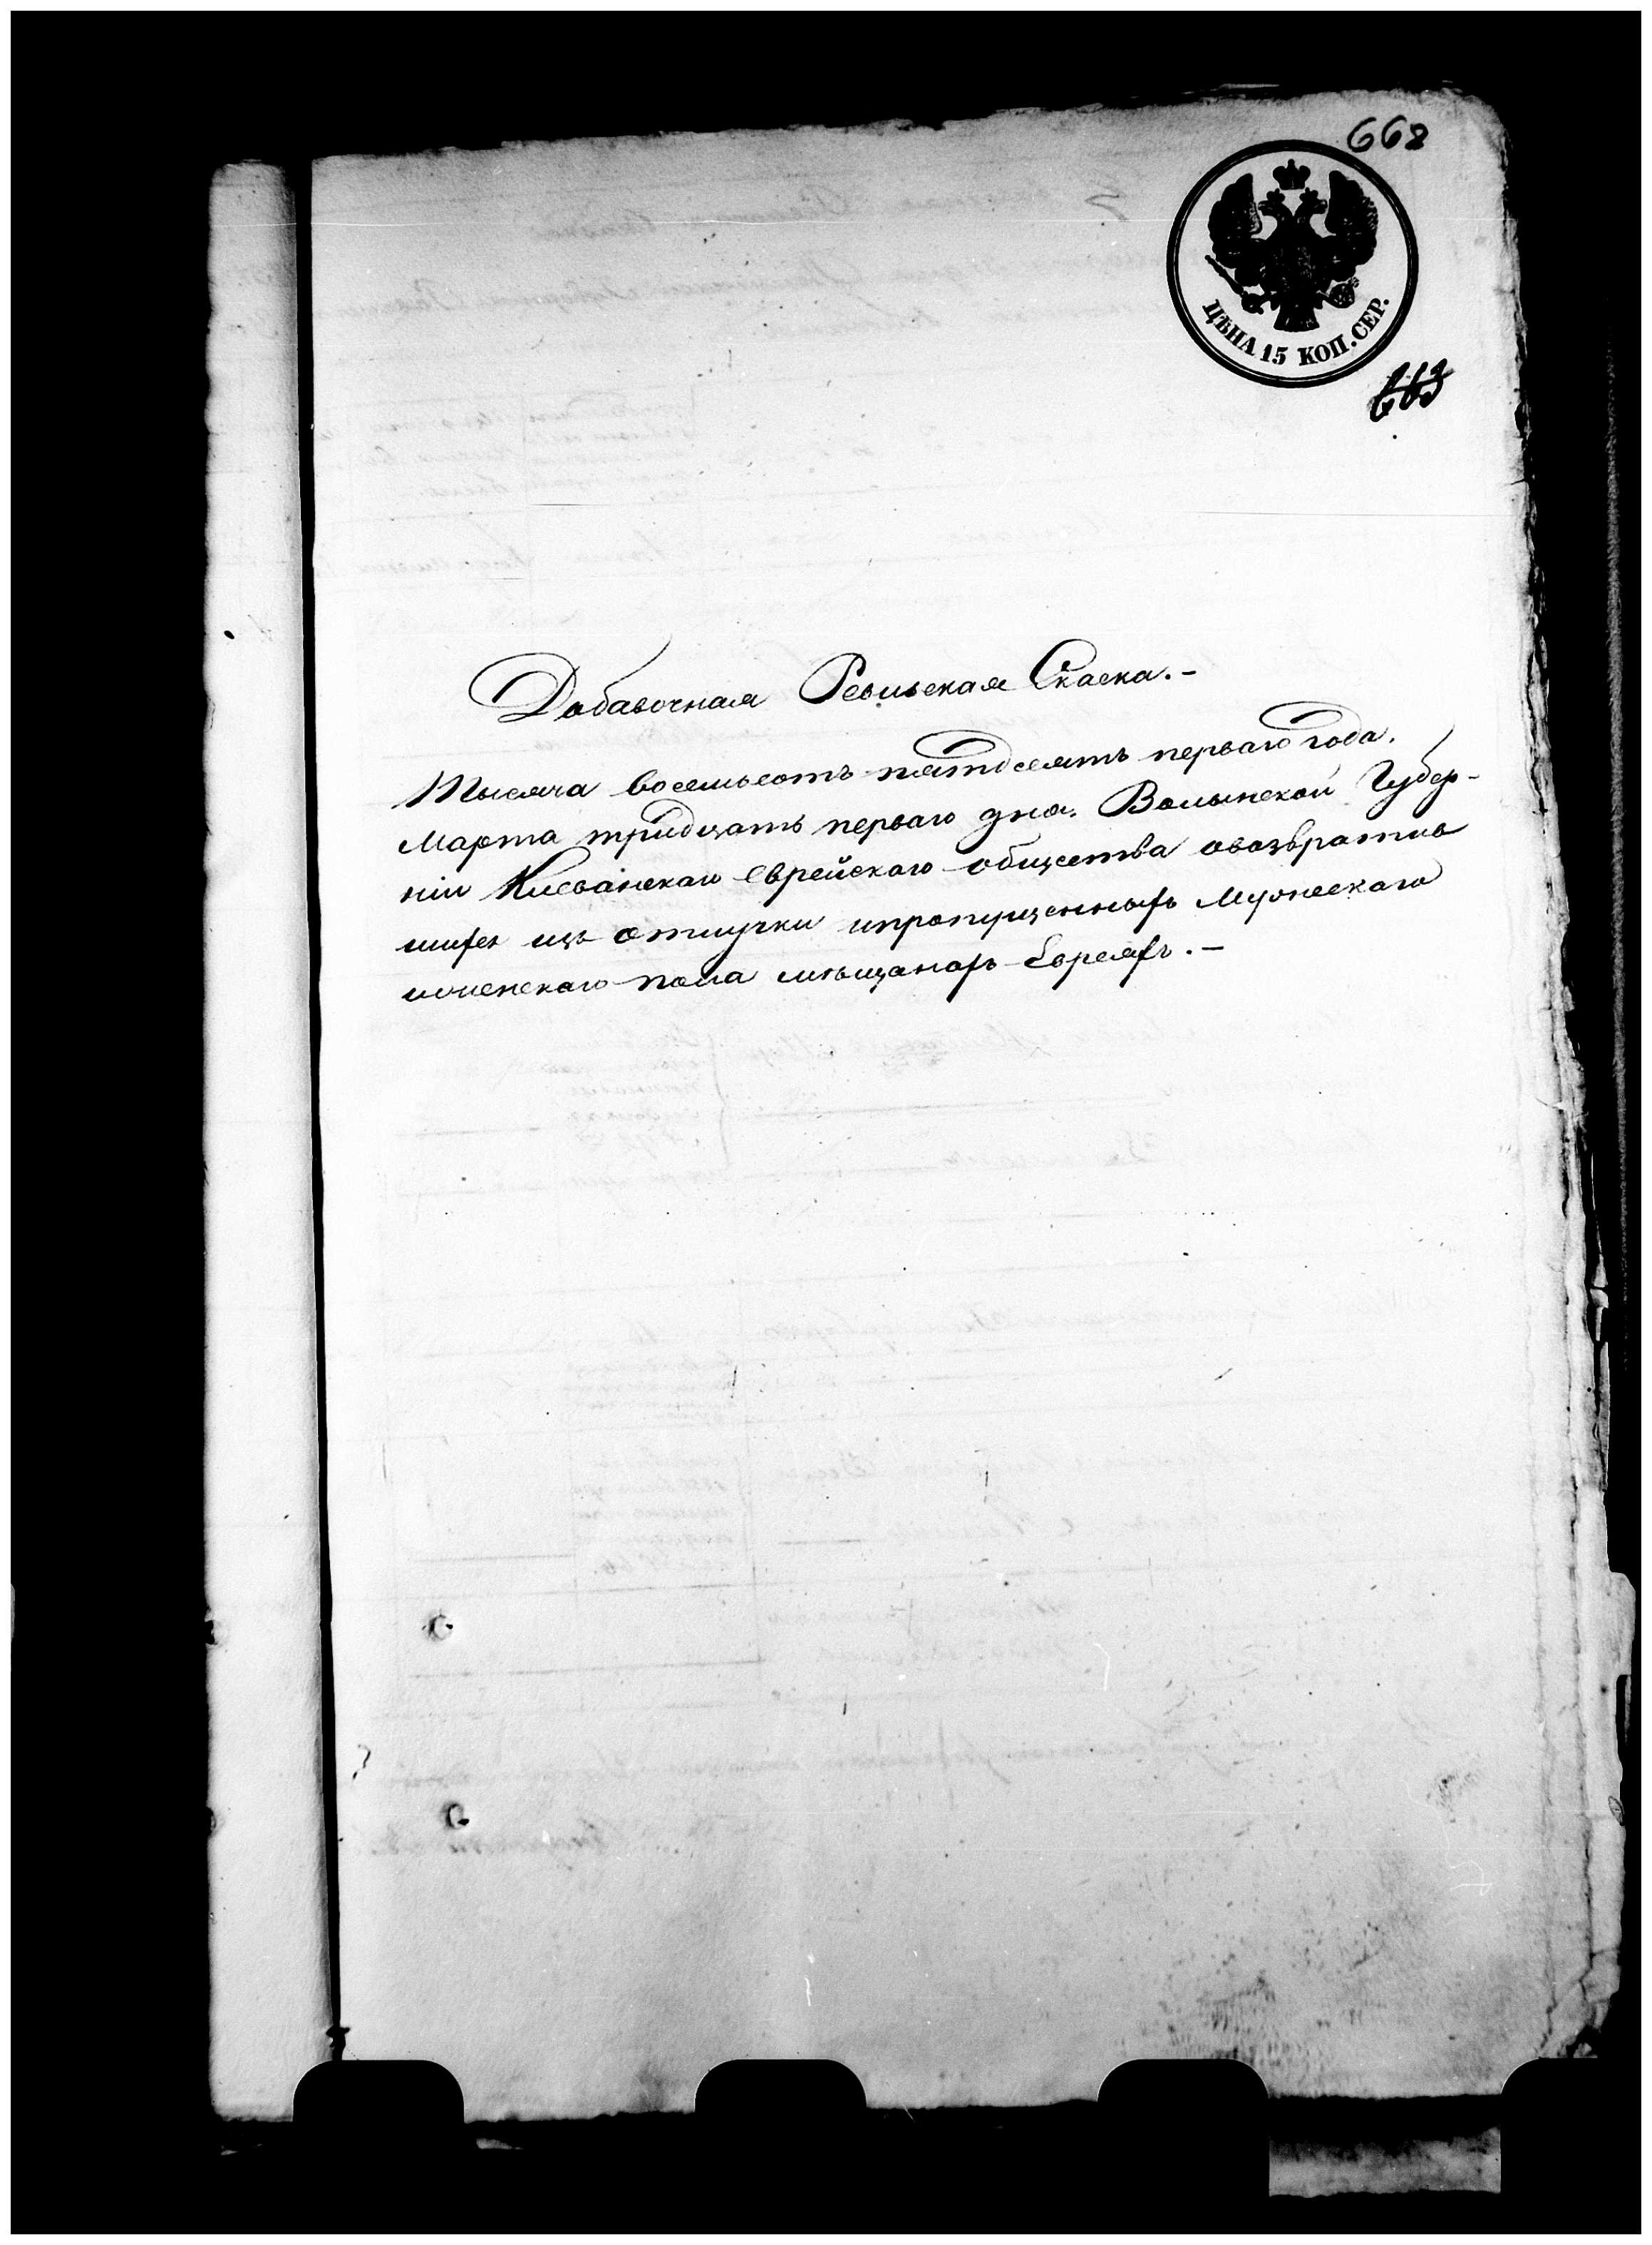 668
ЦѢНА 15 КОП. СЕР.
663
Добавочная Ревизская Скаска.-
Тысяча восемьсотъ пятдесятъ перваго года.
Марта тридцать перваго дня. Волынской Губер-
ніи Клеванскаго Еврейскаго общества овозврати
шихся изъ отлучки ипропущенныхъ Мужескаго
иженскаго пола мѣщанахъ Евреяхъ.-